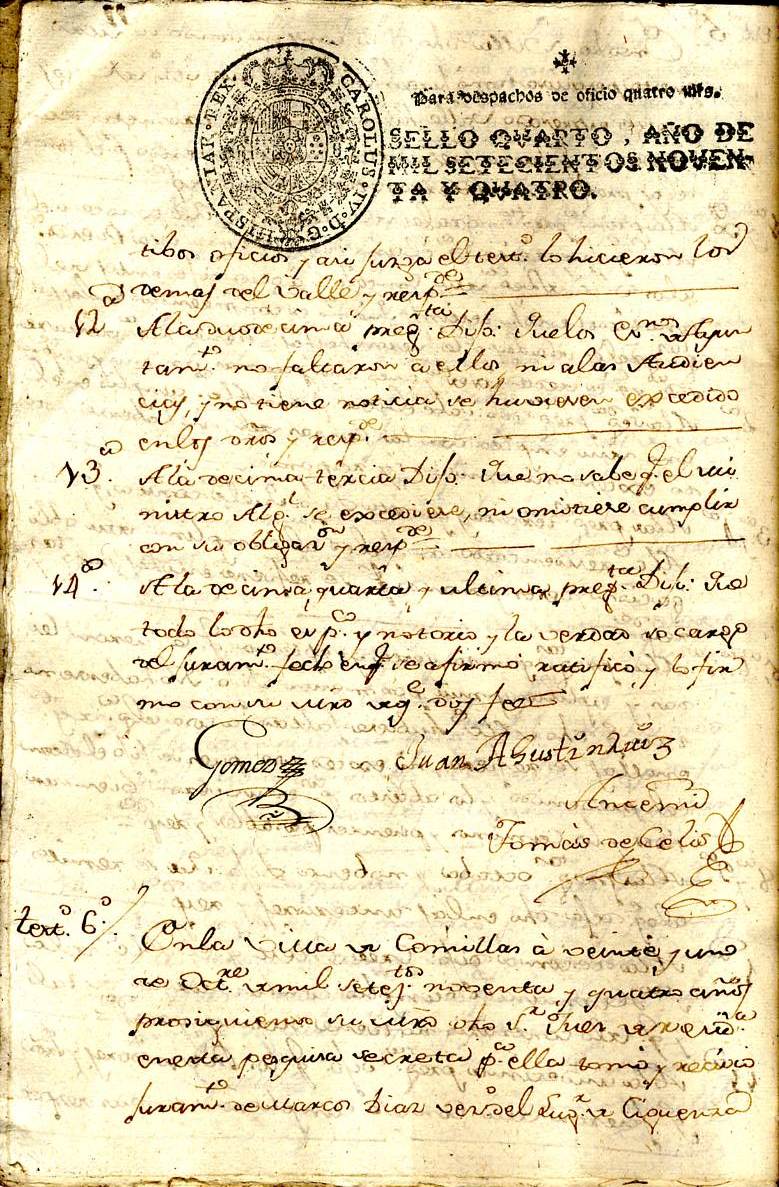 CAROLUS·IV·D·G·HISPANIAR·REX·
Para despachos de oficio quatro mrs.
SELLO QVARTO, AÑO DE
MIL SETECIENTOS NOVEN-
TA Y QVATRO.
tibos oficios y asi juzga el test.º lo hicieron los
demas del Valle y resp.de
12ª A la duodecima preg.ta Dijo: Que los Es.nos de Ayun
tam.to no faltaron a ellos ni alas Audien
cias, y no tiene noticia se huviesen excedido
en los dros y resp.de
13ª A la decima tercia Dijo: Que no sabe q.e el mi
nistro Alg.l se excediese, ni omitiese cumplir
con su obligaz.on y resp.de
14ª A la decima quarta y ultima preg.ta Dijo: Que
todo lo dho es p.co y notorio y la verdad so cargo
del juram.to fecho en q.e se afirmó ratificó y lo fir
mo con su mrd de q.e doy fee
Gomez
Juan Agustin Ruiz
Ante mi
Tomás de Celis
test.º 6.º
En la Villa de Comillas à veinte y uno
de Oct.re de mil setez.tos noventa y quatro años
prosiguiendo su mrd dho S.r Juez de resid.a
en esta pesquisa secreta p.a ella tomó y recivio
juram.to de Marcos Diaz vez.º del Lug.r de Ciguenza